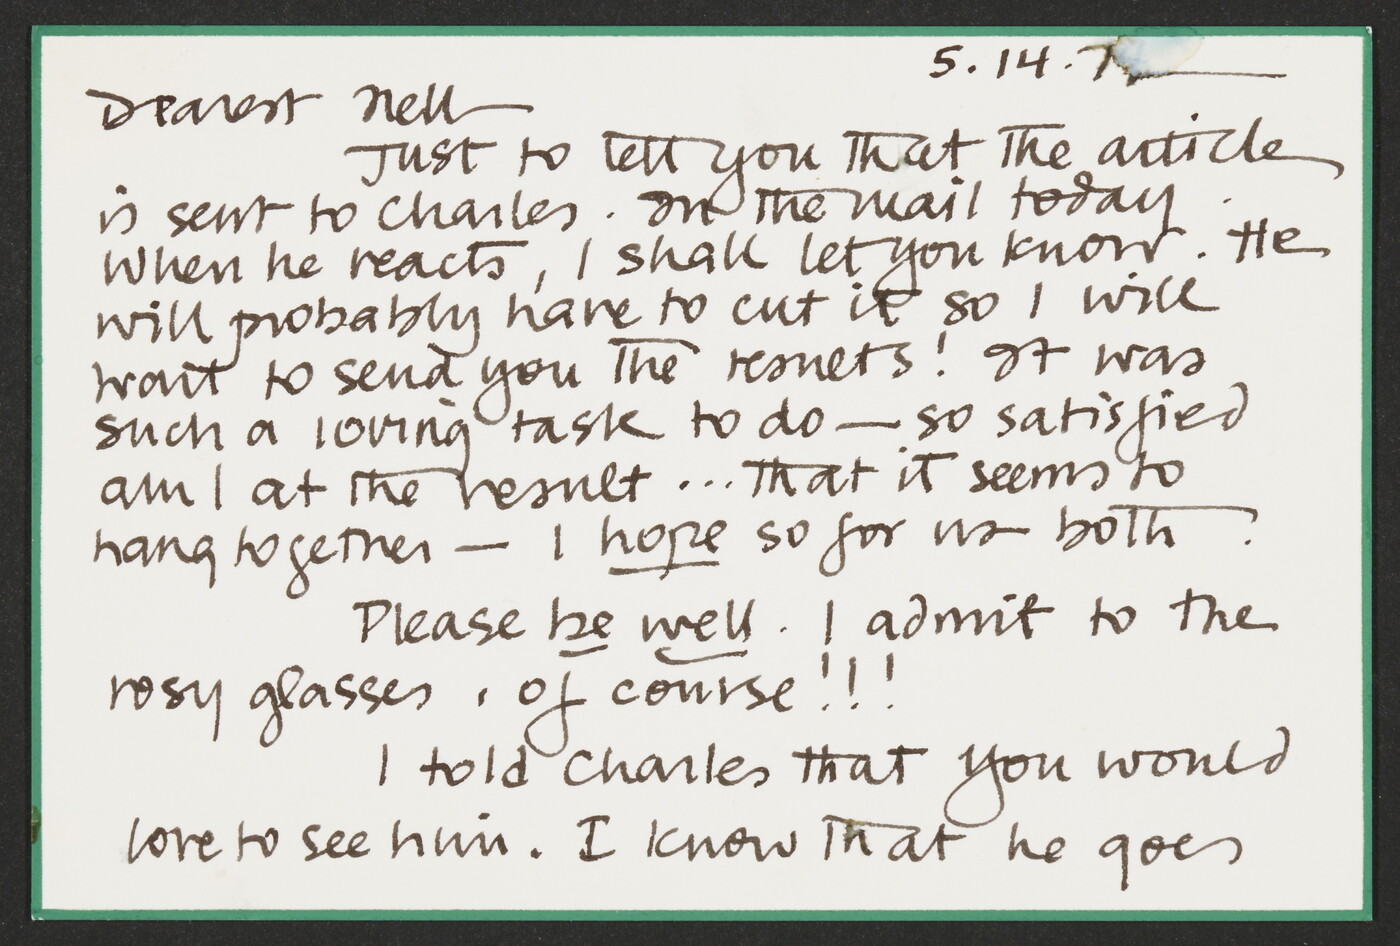 5.14.7
Dearest Nell
Just to tell you that the article
is sent to Charles. In the mail today.
When he reacts, I shall let you know. He
will probably have to cut it so I will
wait to send you the results! It was
such a loving task to do — so satisfied
am I at the result ... that it seems to
hang together — I hope so for us both.
Please be well. I admit to the
rosy glasses, of course!!!
I told Charles that you would
love to see him. I know that he goes